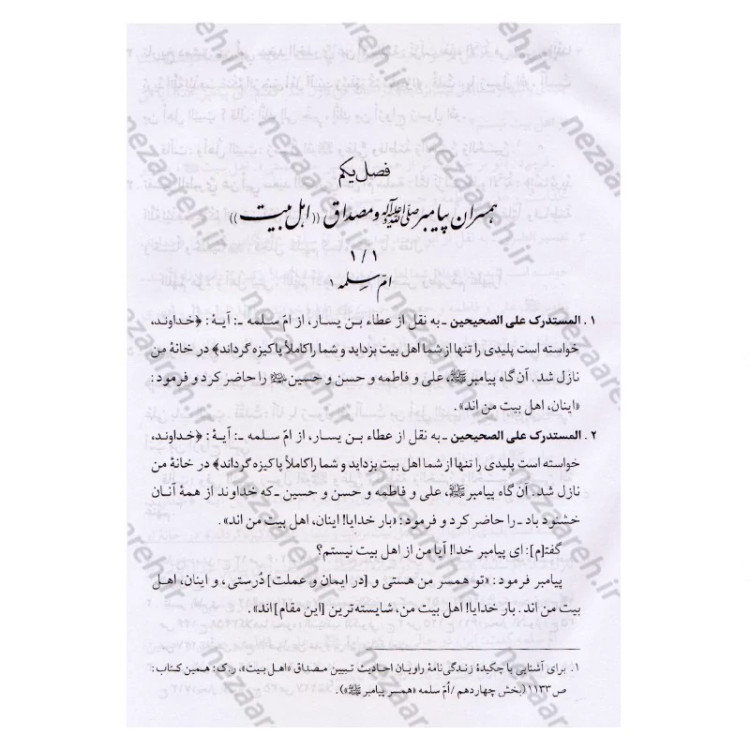 فصل یکم
همسران پیامبر صلی الله علیه و آله و مصداق «اهل بیت»
۱ / ۱
امّ سلمه ۱
۱ . المستدرك علی الصحیحین ـ به نقل از عطاء بن یسار، از امّ سلمه ـ: آیهٔ: ﴿خداوند،
خواسته است پلیدی را تنها از شما اهل بیت بزداید و شما را کاملاً پاکیزه گرداند﴾ در خانهٔ من
نازل شد. آن گاه پیامبر ﷺ، علی و فاطمه و حسن و حسین را حاضر کرد و فرمود:
«اینان، اهل بیت من اند».
۲ . المستدرك علی الصحیحین ـ به نقل از عطاء بن یسار، از امّ سلمه ـ: آیهٔ: ﴿خداوند،
خواسته است پلیدی را تنها از شما اهل بیت بزداید و شما را کاملاً پاکیزه گرداند﴾ در خانهٔ من
نازل شد. آن گاه پیامبر ﷺ، علی و فاطمه و حسن و حسین ـ که خداوند از همهٔ آنان
خشنود باد ـ را حاضر کرد و فرمود: «بار خدایا! اینان، اهل بیت من اند».
گفت[م]: ای پیامبر خدا! آیا من از اهل بیت نیستم؟
پیامبر فرمود: «تو همسر من هستی و [در ایمان و عملت] دُرستی، و اینان، اهل
بیت من اند. بار خدایا! اهل بیت من، شایسته‌ترین [این مقام] اند».
۱. برای آشنایی با چکیدهٔ زندگی‌نامهٔ راویان احادیث تبیین مصداق «اهل بیت»، ر.ک: همین کتاب:
ص ۱۱۳۳ (بخش چهاردهم / اُمّ سلمه «همسر پیامبر ﷺ»).
nezaareh.ir